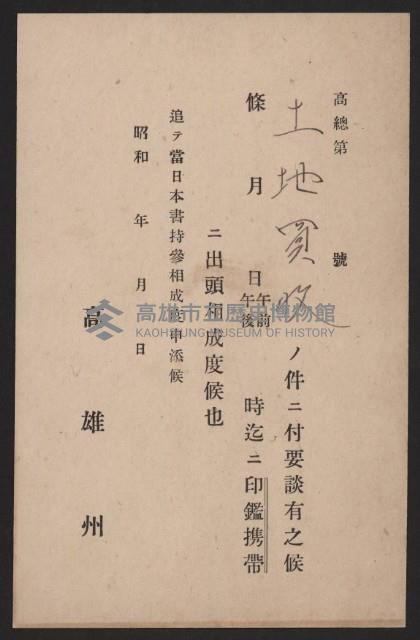 高總第　　號
土地買收ノ件ニ付要談有之候
條　月　日午前午後　時迄ニ印鑑携帶
ニ出頭相成度候也
追テ當日本書持參相成度申添候
昭和　年　月　日
高雄州
高雄市立歷史博物館
KAOHSIUNG MUSEUM OF HISTORY